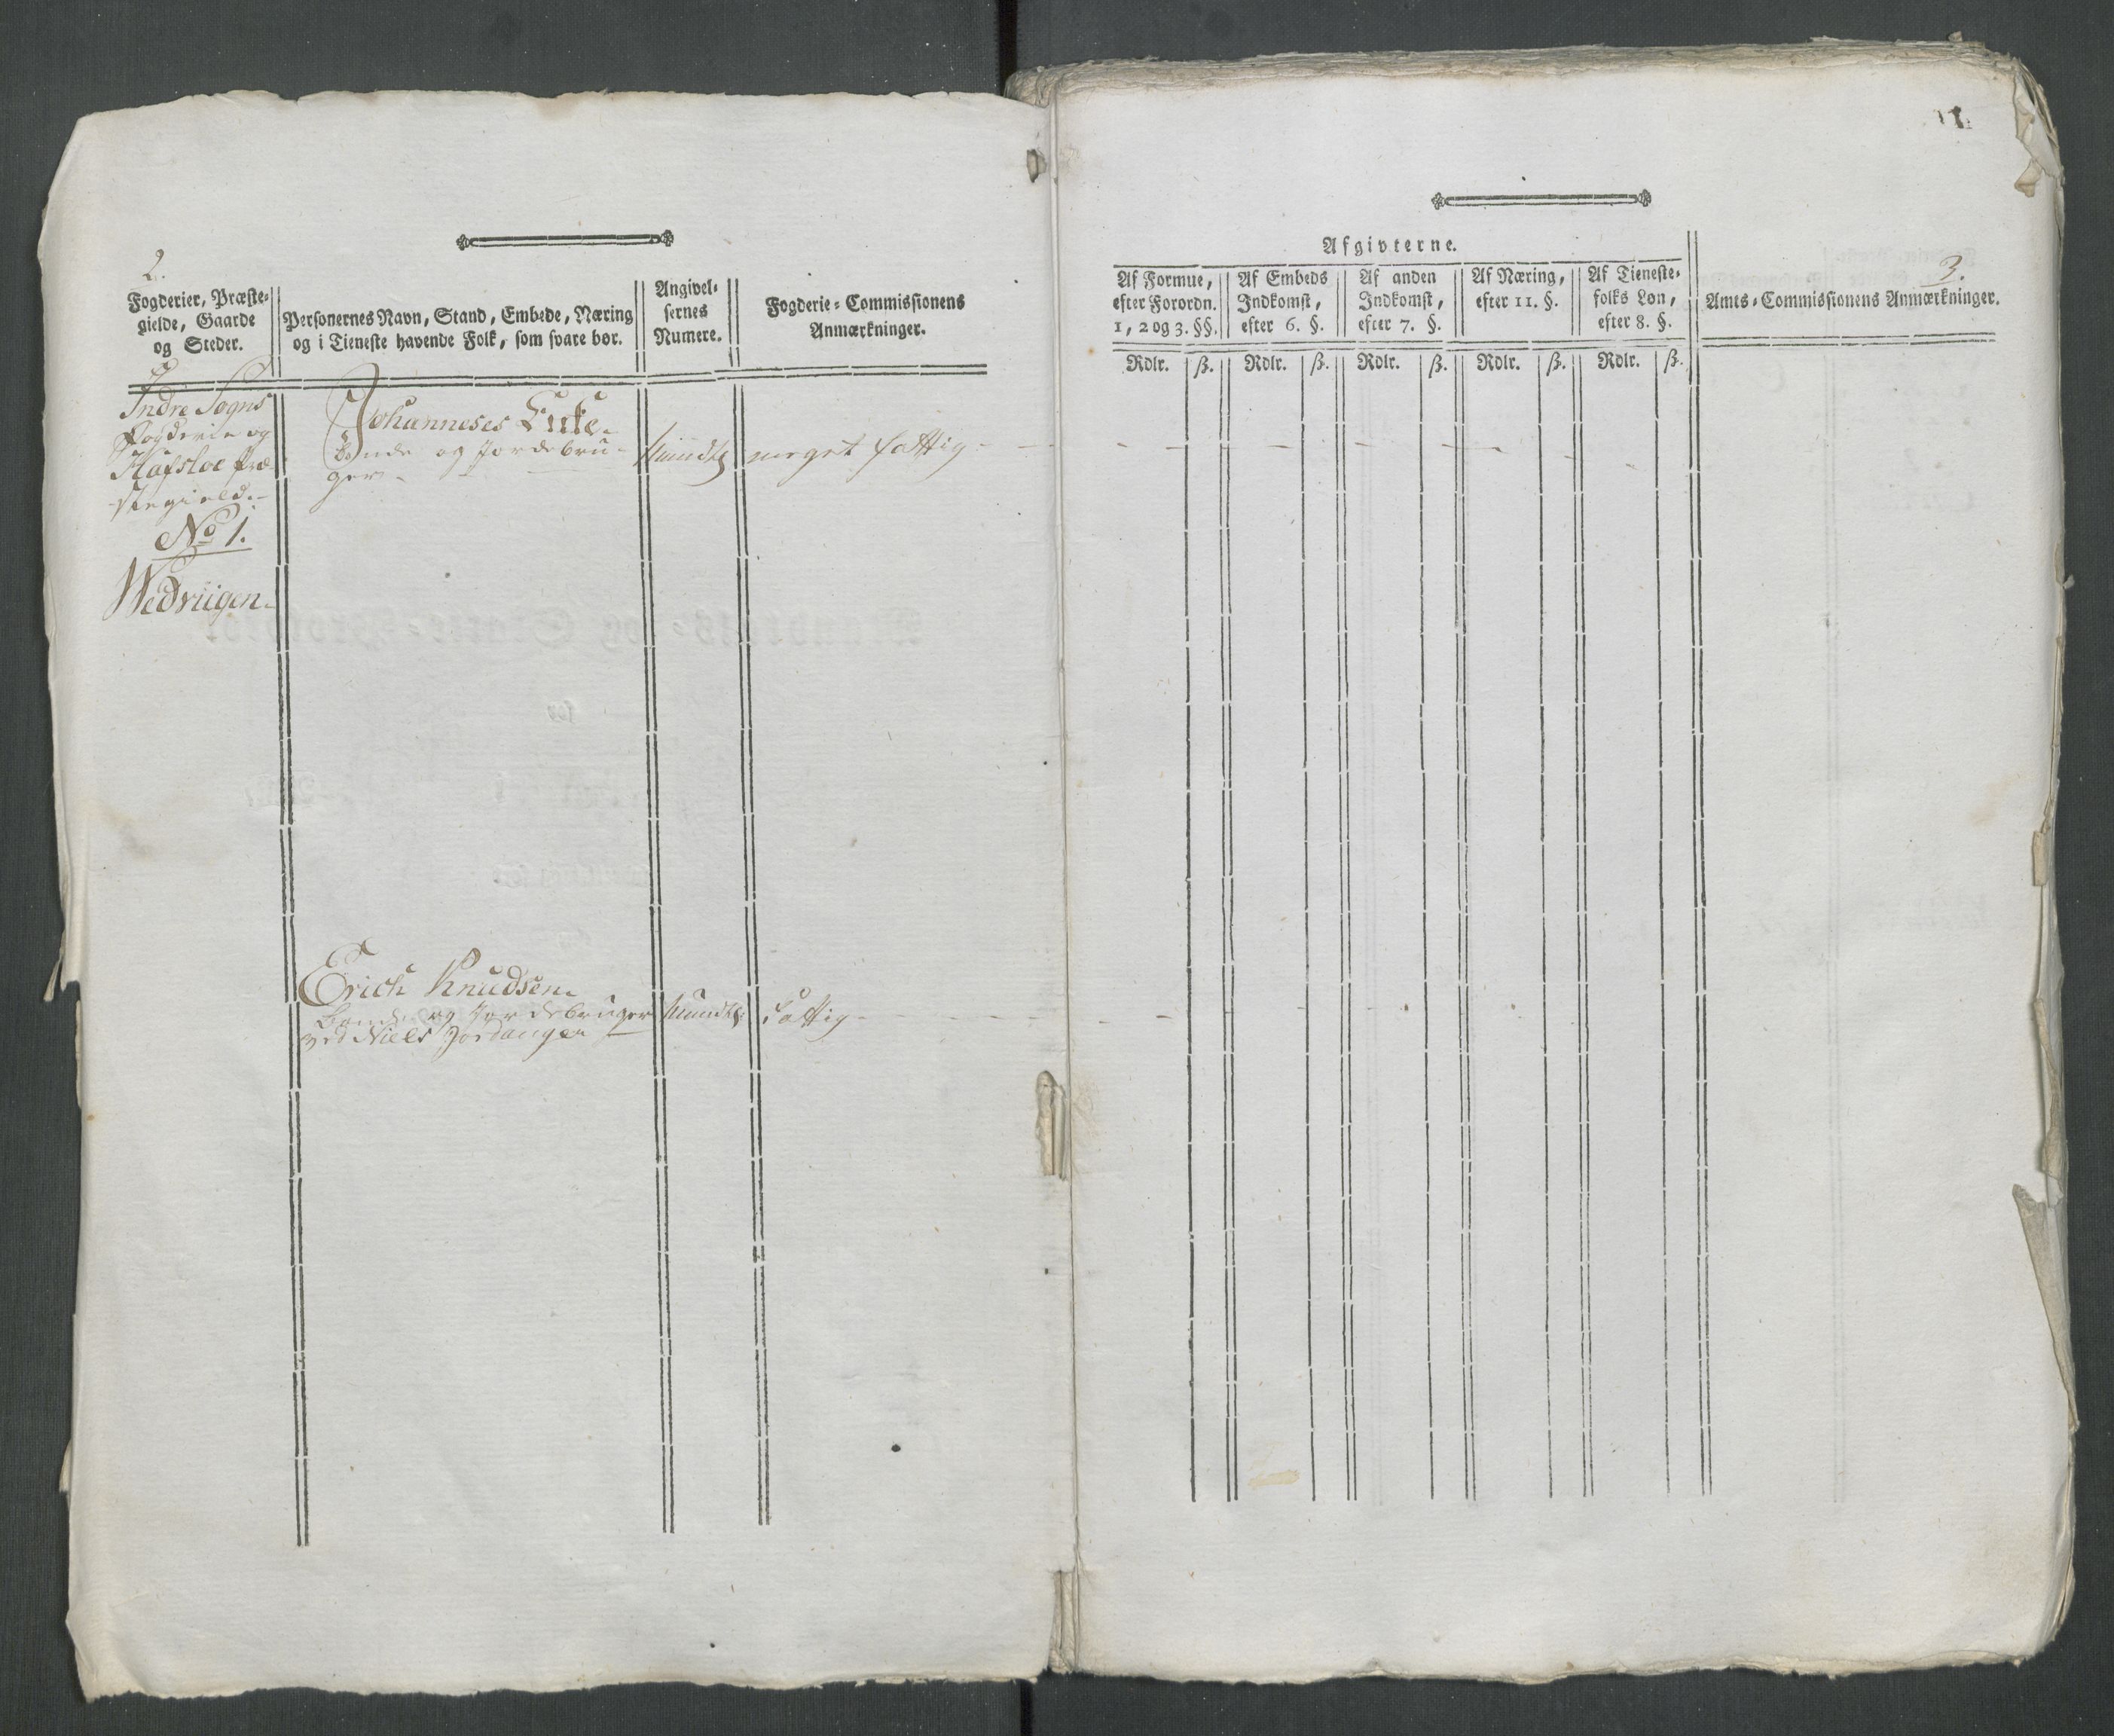 2.
Fogderier, Præste-
gielde, Gaarde
og Steder.
Personernes Navn, Stand, Embede, Næring
og i Tieneste havende Folk, som svare bør.
Angivel-
sernes
Numere.
Fogderie-Commissionens
Anmærkninger.
Indre Sogns
Fogderie og
Hafsloe Præ
stegield.-
No 1.
Wedviigen.
Johanneses Enke.
bonde og Jordebru-
ger.
Mundtl
meget fattig
Erich Knudsen
bonde og Jordebruger
ved Niels Jordanger
Mundtl
Fattig
3.
Afgivterne.
Af Formue,
efter Forordn.
1, 2 og 3. §§.
Af Embeds
Indkomst,
efter 6. §.
Af anden
Indkomst,
efter 7. §.
Af Næring,
efter 11. §.
Af Tieneste-
folks Løn,
efter 8. §.
Amts-Commissionens Anmærkninger.
Rdlr. ß. Rdlr. ß. Rdlr. ß. Rdlr. ß. Rdlr. ß.